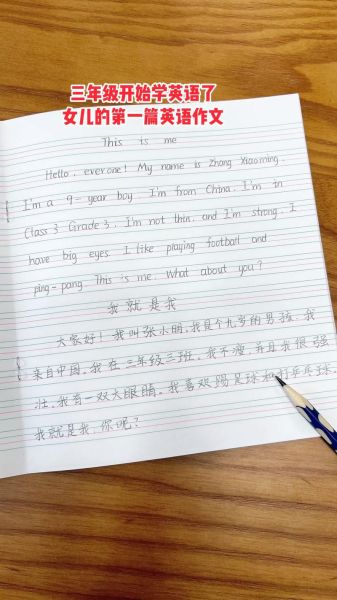 三年级开始学英语了
女儿的第一篇英语作文
This is me
Hello, everone! My name is Zhang Xiaoming.
I'm a 9-year boy. I'm from China. I'm in
Class 3 Grade 3. I'm not thin, and I'm strong. I
have big eyes. I like playing football and
ping-pang. This is me. What about you?
我就是我
大家好! 我叫张小明, 我是个九岁的男孩, 我
来自中国, 我在三年级三班, 我不瘦, 并且我很强
壮, 我有一双大眼睛, 我喜欢踢足球和打乒乓球,
我就是我, 你呢?